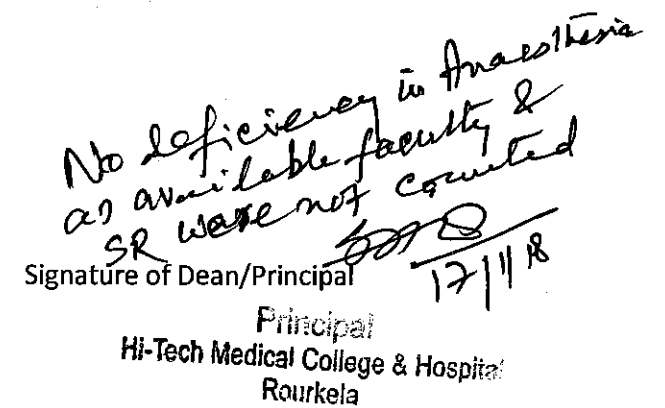 No deficiency in Anaesthesia
as available faculty &
SR were not counted
Signature of Dean/Principal
17/11/18
Principal
Hi-Tech Medical College & Hospital
Rourkela